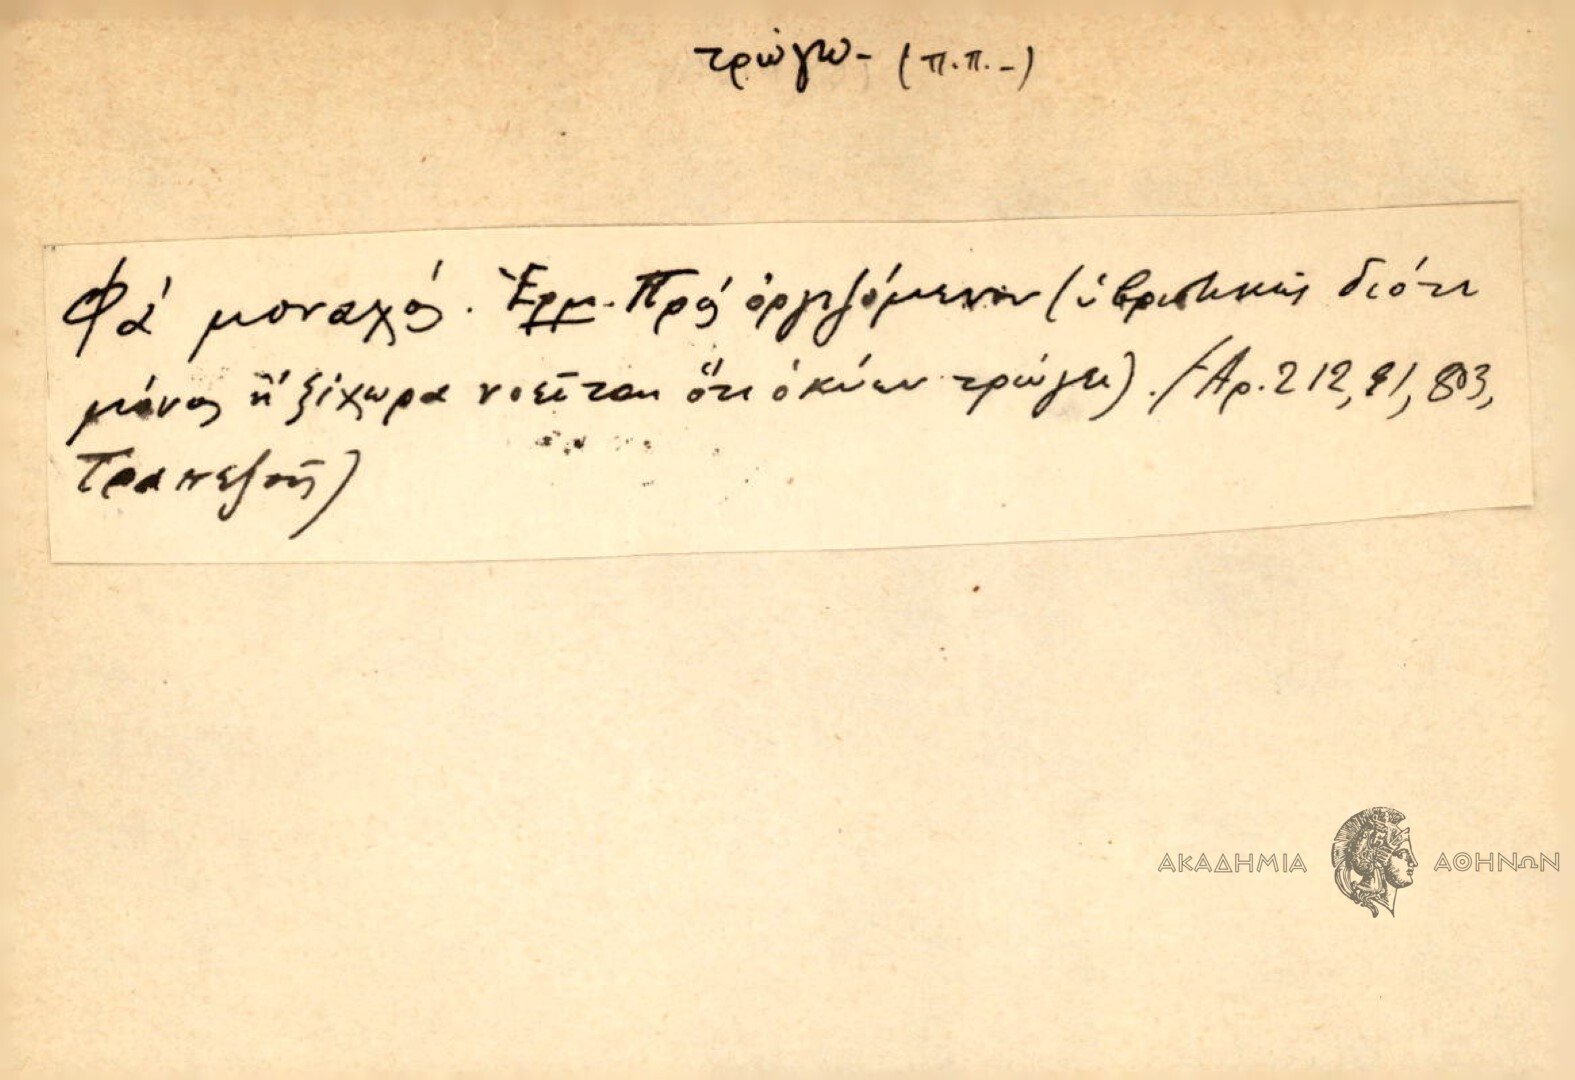 τρώγω - (π.π. -)
Φά μοναχός. Ἑρμ. Πρός ὀργιζόμενον (ὑβριστικῶς διότι
μόνος ἤ ξίχωρα νοεῖται ὅτι ὁ κύων τρώγει). (Ἀρ. 212, 91, 803,
Τραπεζοῦς)
ΑΚΑΔΗΜΙΑ ΑΘΗΝΩΝ